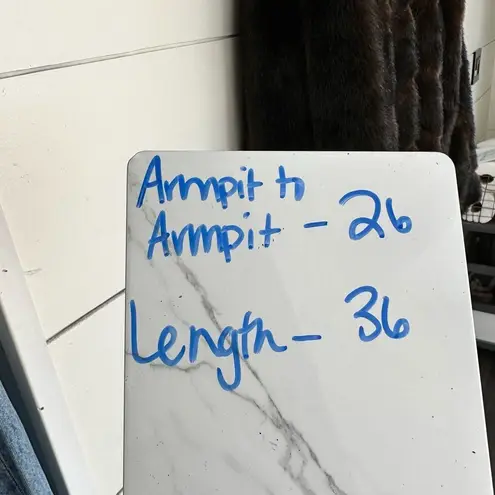 Armpit to
Armpit - 26
Length - 36